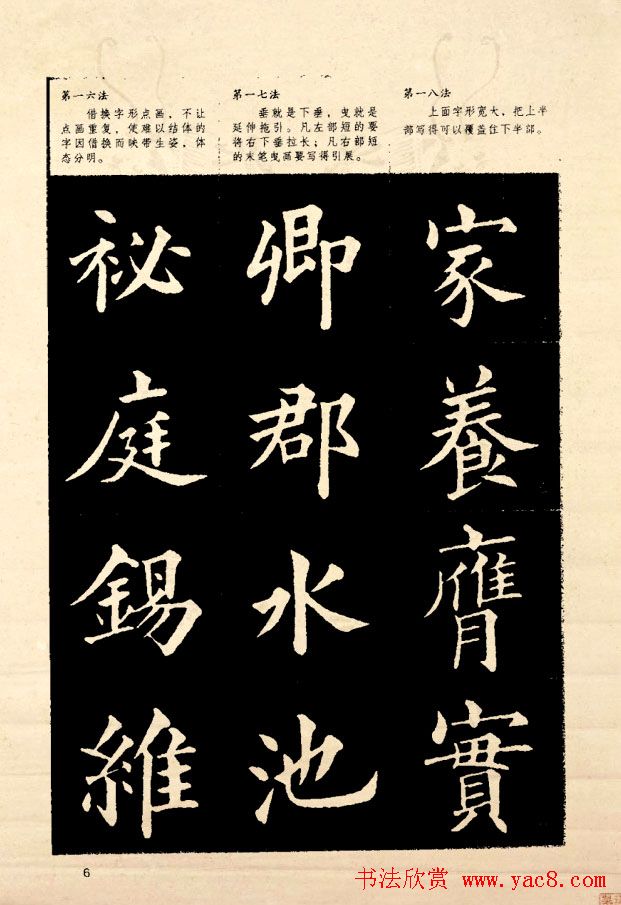 第一六法
借换字形点画，不让
点画重复，使难以结体的
字因借换而映带生姿，体
态分明。
第一七法
垂就是下垂，曳就是
延伸拖引。凡左部短的要
将右下垂拉长；凡右部短
的末笔曳画要写得引展。
第一八法
上面字形宽大，把上半
部写得可以覆盖住下半部。
祕
庭
錫
維
卿
郡
水
池
家
養
膺
實
6
书法欣赏 www.yac8.com